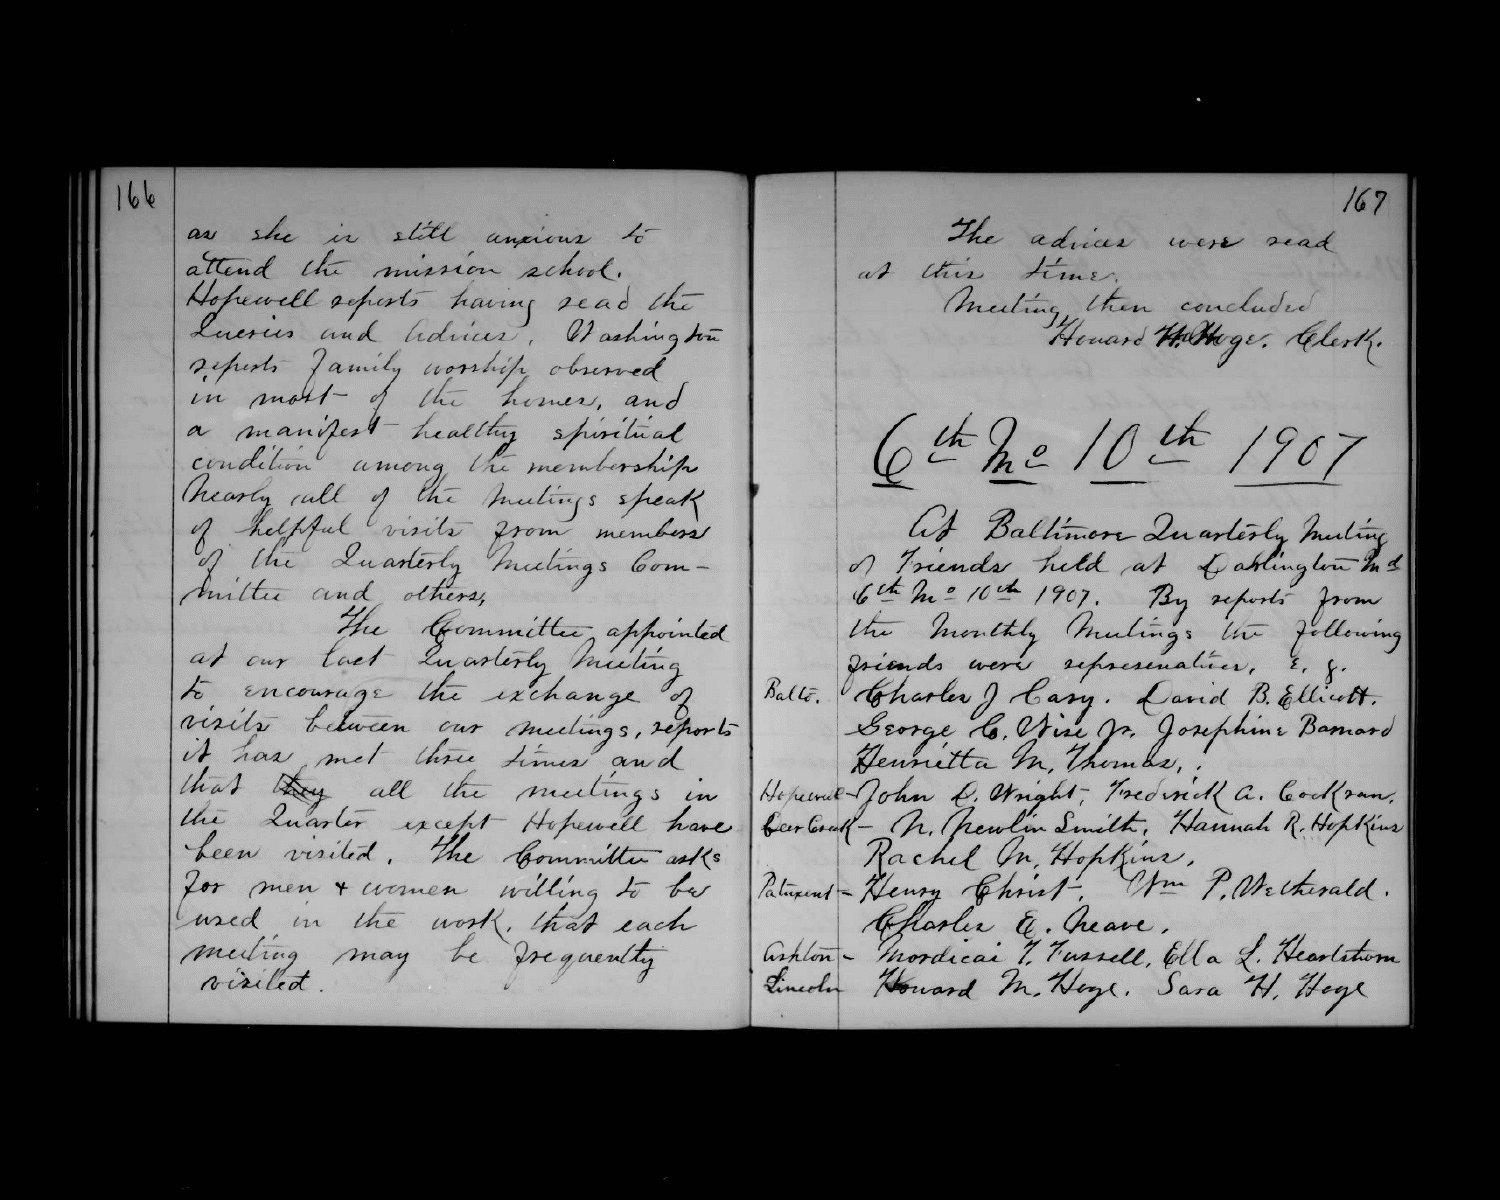 166
as she is still anxious to
attend the mission school.
Hopewell reports having read the
Queries and Advices. Washington
reports family worship observed
in most of the homes, and
a manifest healthy spiritual
condition among the membership
Nearly all of the Meetings speak
of helpful visits from members
of the Quarterly Meetings Com-
mittee and others,
The Committee appointed
at our last Quarterly Meeting
to encourage the exchange of
visits between our meetings, reports
it has met three times and
that they all the meetings in
the Quarter except Hopewell have
been visited. The Committee asks
for men + women willing to be
used in the work, that each
meeting may be frequently
visited.
167
The advices were read
at this time.
Meeting then concluded
Howard Hoge. Clerk.
6th Mo 10th 1907
At Baltimore Quarterly Meeting
of Friends held at Darlington Md
6th Mo 10th 1907. By reports from
the Monthly Meetings the following
friends were representatives, e. g.
Balto. Charles J Cary. David B. Ellicott.
George C. Wise Jr. Josephine Barnard
Henrietta M. Thomas,.
Hopewell - John D. Wright, Frederick A. Cockran.
Deer Creek - N. Newlin Smith, Hannah R. Hopkins
Rachel M. Hopkins.
Patuxent - Henry Christ. Wm P. Wetherald.
Charles E. Neave.
Ashton - Mordicai T. Fussell, Ella L. Heartsthorn
Lincoln Howard M. Hoge. Sara H. Hoge